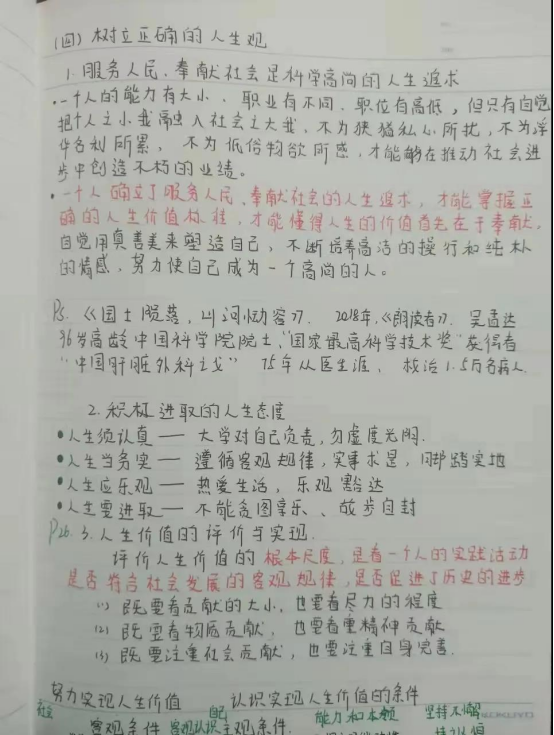 (四) 树立正确的人生观
1. 服务人民、奉献社会是科学高尚的人生追求
•一个人的能力有大小、职业有不同、职位有高低，但只有自觉
把个人之小我融入社会之大我，不为狭猫私心所扰，不为浮
华名利所累，不为低俗物欲所惑，才能够在推动社会进
步中创造不朽的业绩。
•一个人确立了服务人民、奉献社会的人生追求，才能掌握正
确的人生价值标准，才能懂得人生的价值首先在于奉献，
自觉用真善美来塑造自己，不断培养高洁的操行和纯朴
的情感，努力使自己成为一个高尚的人。
Ps. 《国士陨落，山河恸容》. 2018年，《朗读者》. 吴孟达
96岁高龄 中国科学院院士，"国家最高科学技术奖"获得者
"中国肝脏外科之父" 75年从医生涯，救治1.5万名病人.
2. 积极进取的人生态度
•人生须认真 — 大学对自己负责，勿虚度光阴.
•人生当务实 — 遵循客观规律，实事求是，脚踏实地
•人生应乐观 — 热爱生活，乐观豁达
•人生要进取 — 不能贪图享乐、故步自封
P26. 3. 人生价值的评价与实现.
评价人生价值的根本尺度，是看一个人的实践活动
是否符合社会发展的客观规律，是否促进了历史的进步
(1) 既要看贡献的大小，也要看尽力的程度
(2) 既要看物质贡献，也要看重精神贡献
(3) 既要注重社会贡献，也要注重自身完善.
努力实现人生价值 认识实现人生价值的条件
社会 自己 能力和本领 坚持不懈
客观条件 客观认识主观条件.